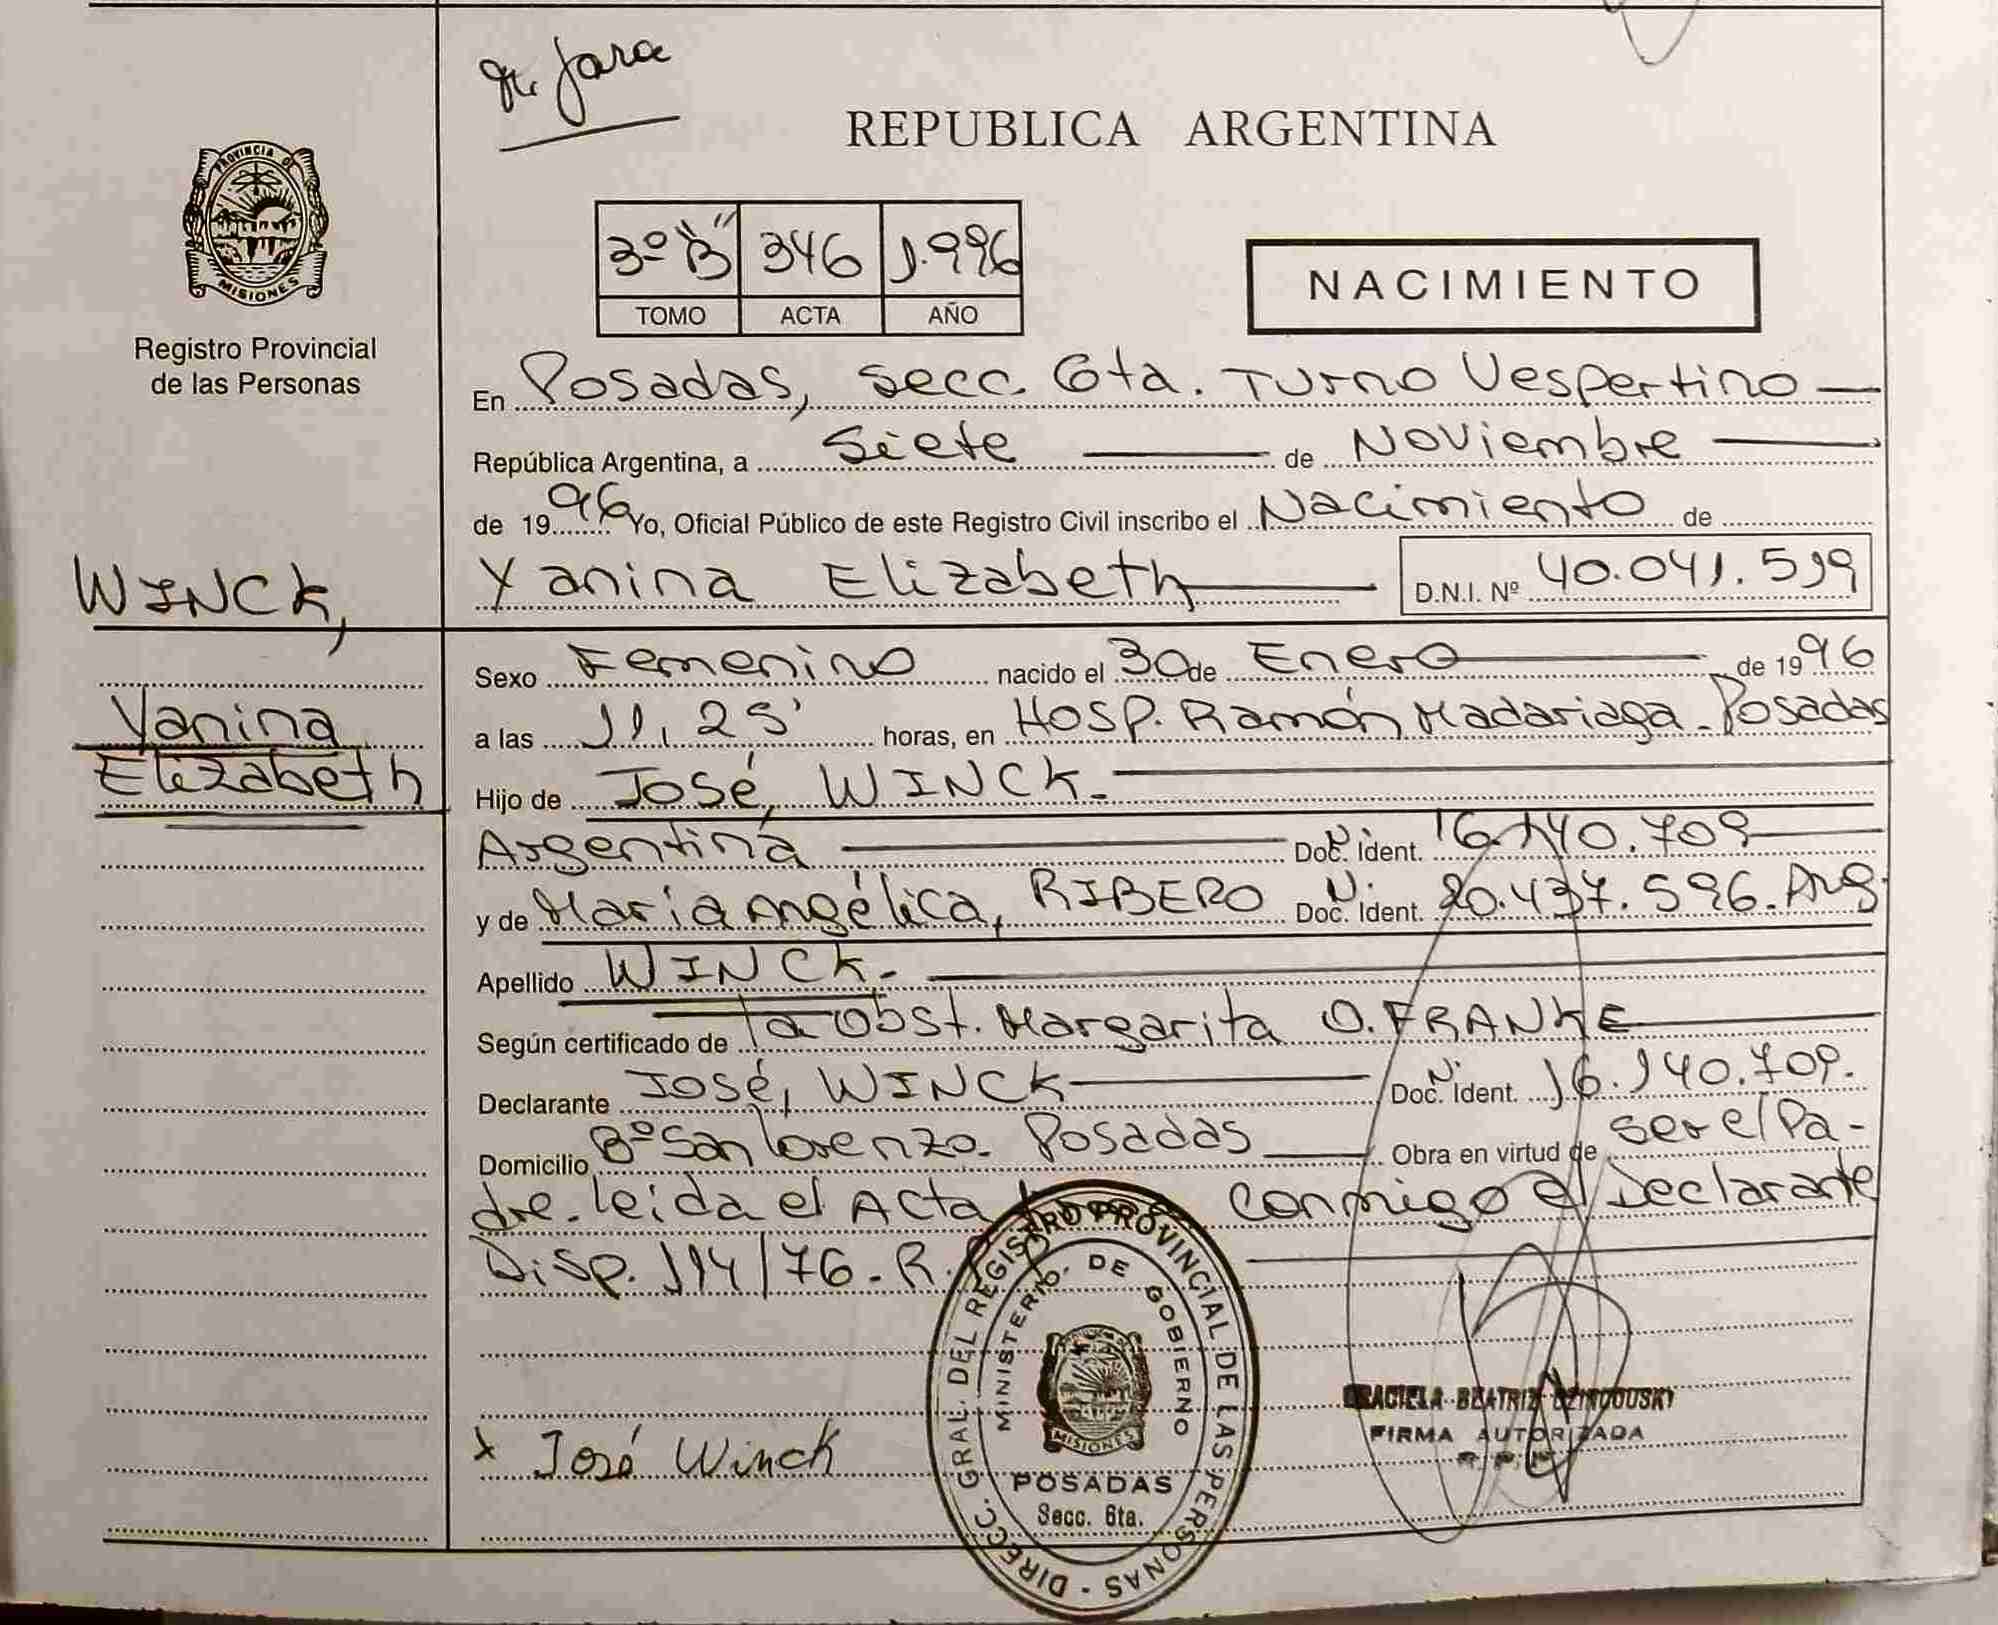 M. Jara
PROVINCIA DE
MISIONES
Registro Provincial
de las Personas
REPUBLICA ARGENTINA
3º "B" 346 1.996
TOMO ACTA AÑO
NACIMIENTO
En Posadas, secc. 6ta. Turno Vespertino
República Argentina, a siete de Noviembre
de 1996 Yo, Oficial Público de este Registro Civil inscribo el Nacimiento de
Yanina Elizabeth D.N.I. Nº 40.041.519
WINCK,
Yanina
Elizabeth
Sexo Femenino nacido el 30 de Enero de 1996
a las 11,25' horas, en Hosp. Ramón Madariaga - Posadas
Hijo de José, WINCK.
Argentina Doc. Ident. N. 16.140.709
y de María Angélica, RIBERO Doc. Ident. N. 20.437.596. Arg.
Apellido WINCK.
Según certificado de la Obst. Margarita O. FRANKE
Declarante José, WINCK Doc. Ident. N. 16.140.709.
Domicilio Bº San Lorenzo. Posadas Obra en virtud de ser el Pa-
dre. leida el Acta conmigo el Declarante
Disp. 114/76. R.
DIRECC. GRAL. DEL REGISTRO PROVINCIAL DE LAS PERSONAS
MINISTERIO DE GOBIERNO
MISIONES
POSADAS
Secc. 6ta.
x José Winck
GRACIELA BEATRIZ
FIRMA AUTORIZADA